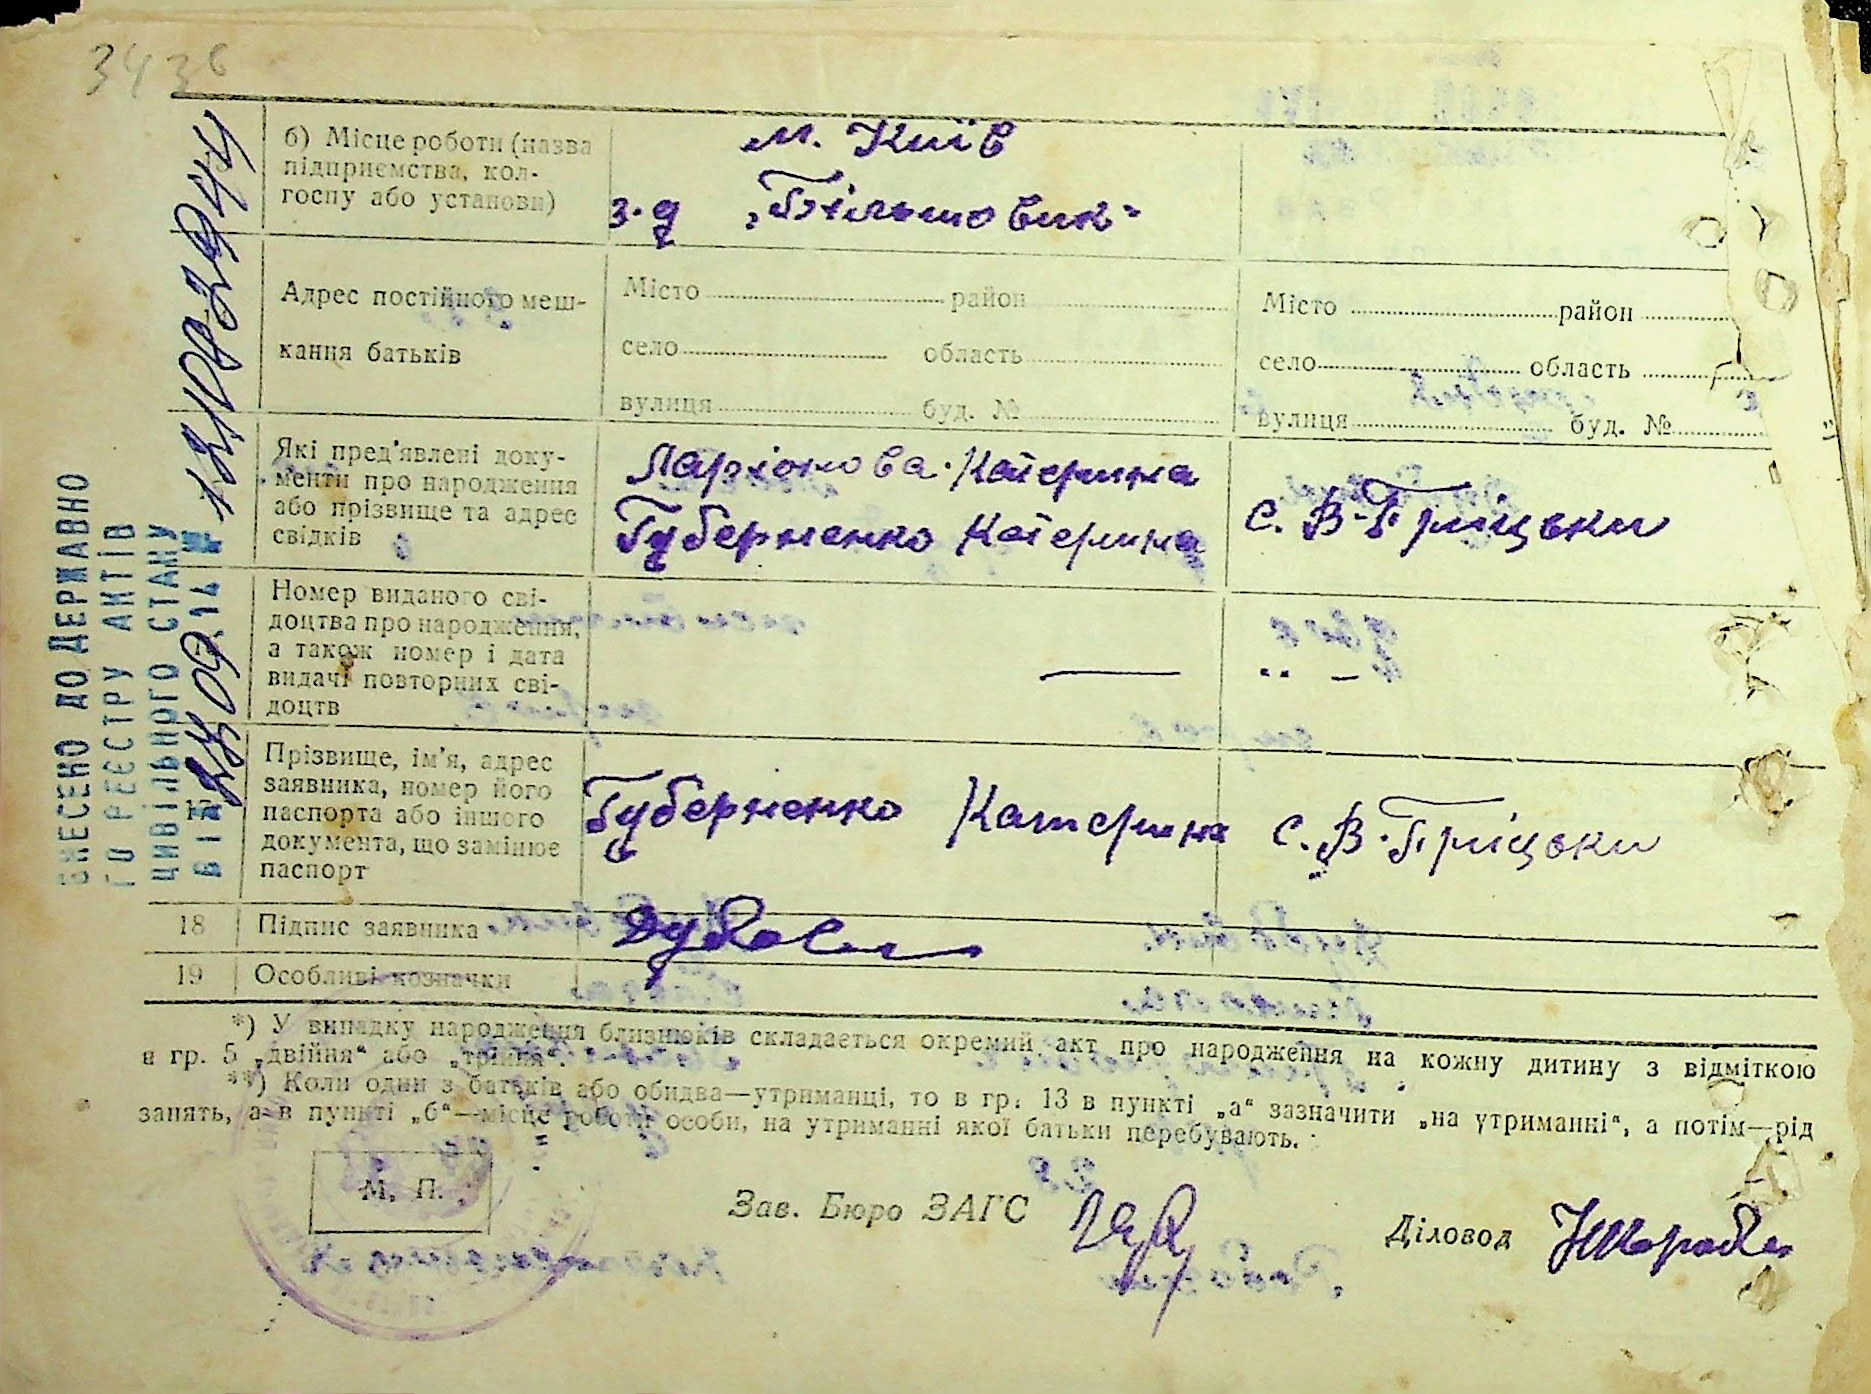 343
б) Місце роботи (назва
підприємства, кол-
госпу або установи)
м. Київ
з-д „Більшовик"
Адрес постійного меш-
кання батьків
Місто район
село область
вулиця буд. №
Місто район
село область
вулиця буд. №
Які пред'явлені доку-
менти про народження
або прізвище та адрес
свідків
Ларіонова Катерина
Губерненко Катерина
с. В-Бріцьки
Номер виданого сві-
доцтва про народження,
а також номер і дата
видачі повторних сві-
доцтв
— „ —
17
Прізвище, ім'я, адрес
заявника, номер його
паспорта або іншого
документа, що замінює
паспорт
Губерненко Катерина
с. В-Бріцьки
18 Підпис заявника
19 Особливі позначки
*) У випадку народження близнюків складається окремий акт про народження на кожну дитину з відміткою
в гр. 5 „двійня" або „трійня".
**) Коли один з батьків або обидва—утриманці, то в гр. 13 в пункті „а" зазначити „на утриманні", а потім—рід
занять, а в пункті „б"—місце роботи особи, на утриманні якої батьки перебувають.
М. П.
Зав. Бюро ЗАГС
Діловод
ВНЕСЕНО ДО ДЕРЖАВНО
ГО РЕЄСТРУ АКТІВ
ЦИВІЛЬНОГО СТАНУ
ВІД 23.09.14 №